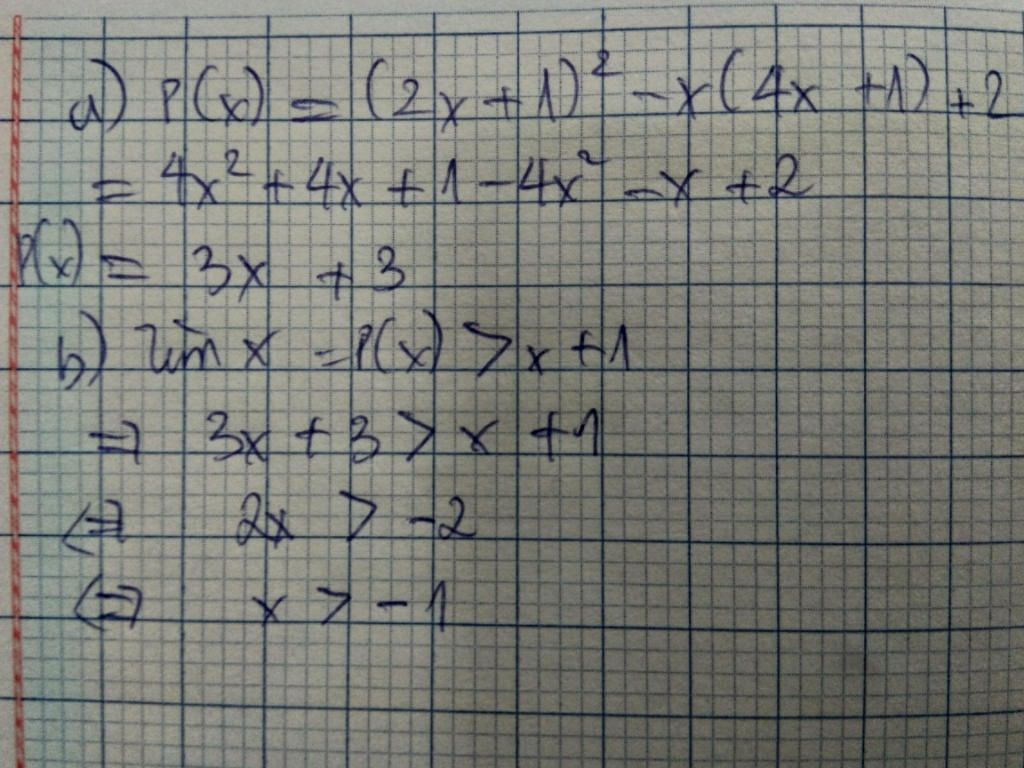 a) P(x) = (2x + 1)² - x(4x + 1) + 2
= 4x² + 4x + 1 - 4x² - x + 2
P(x) = 3x + 3
b) Tìm x = P(x) > x + 1
⇒ 3x + 3 > x + 1
⇔ 2x > -2
⇔ x > -1